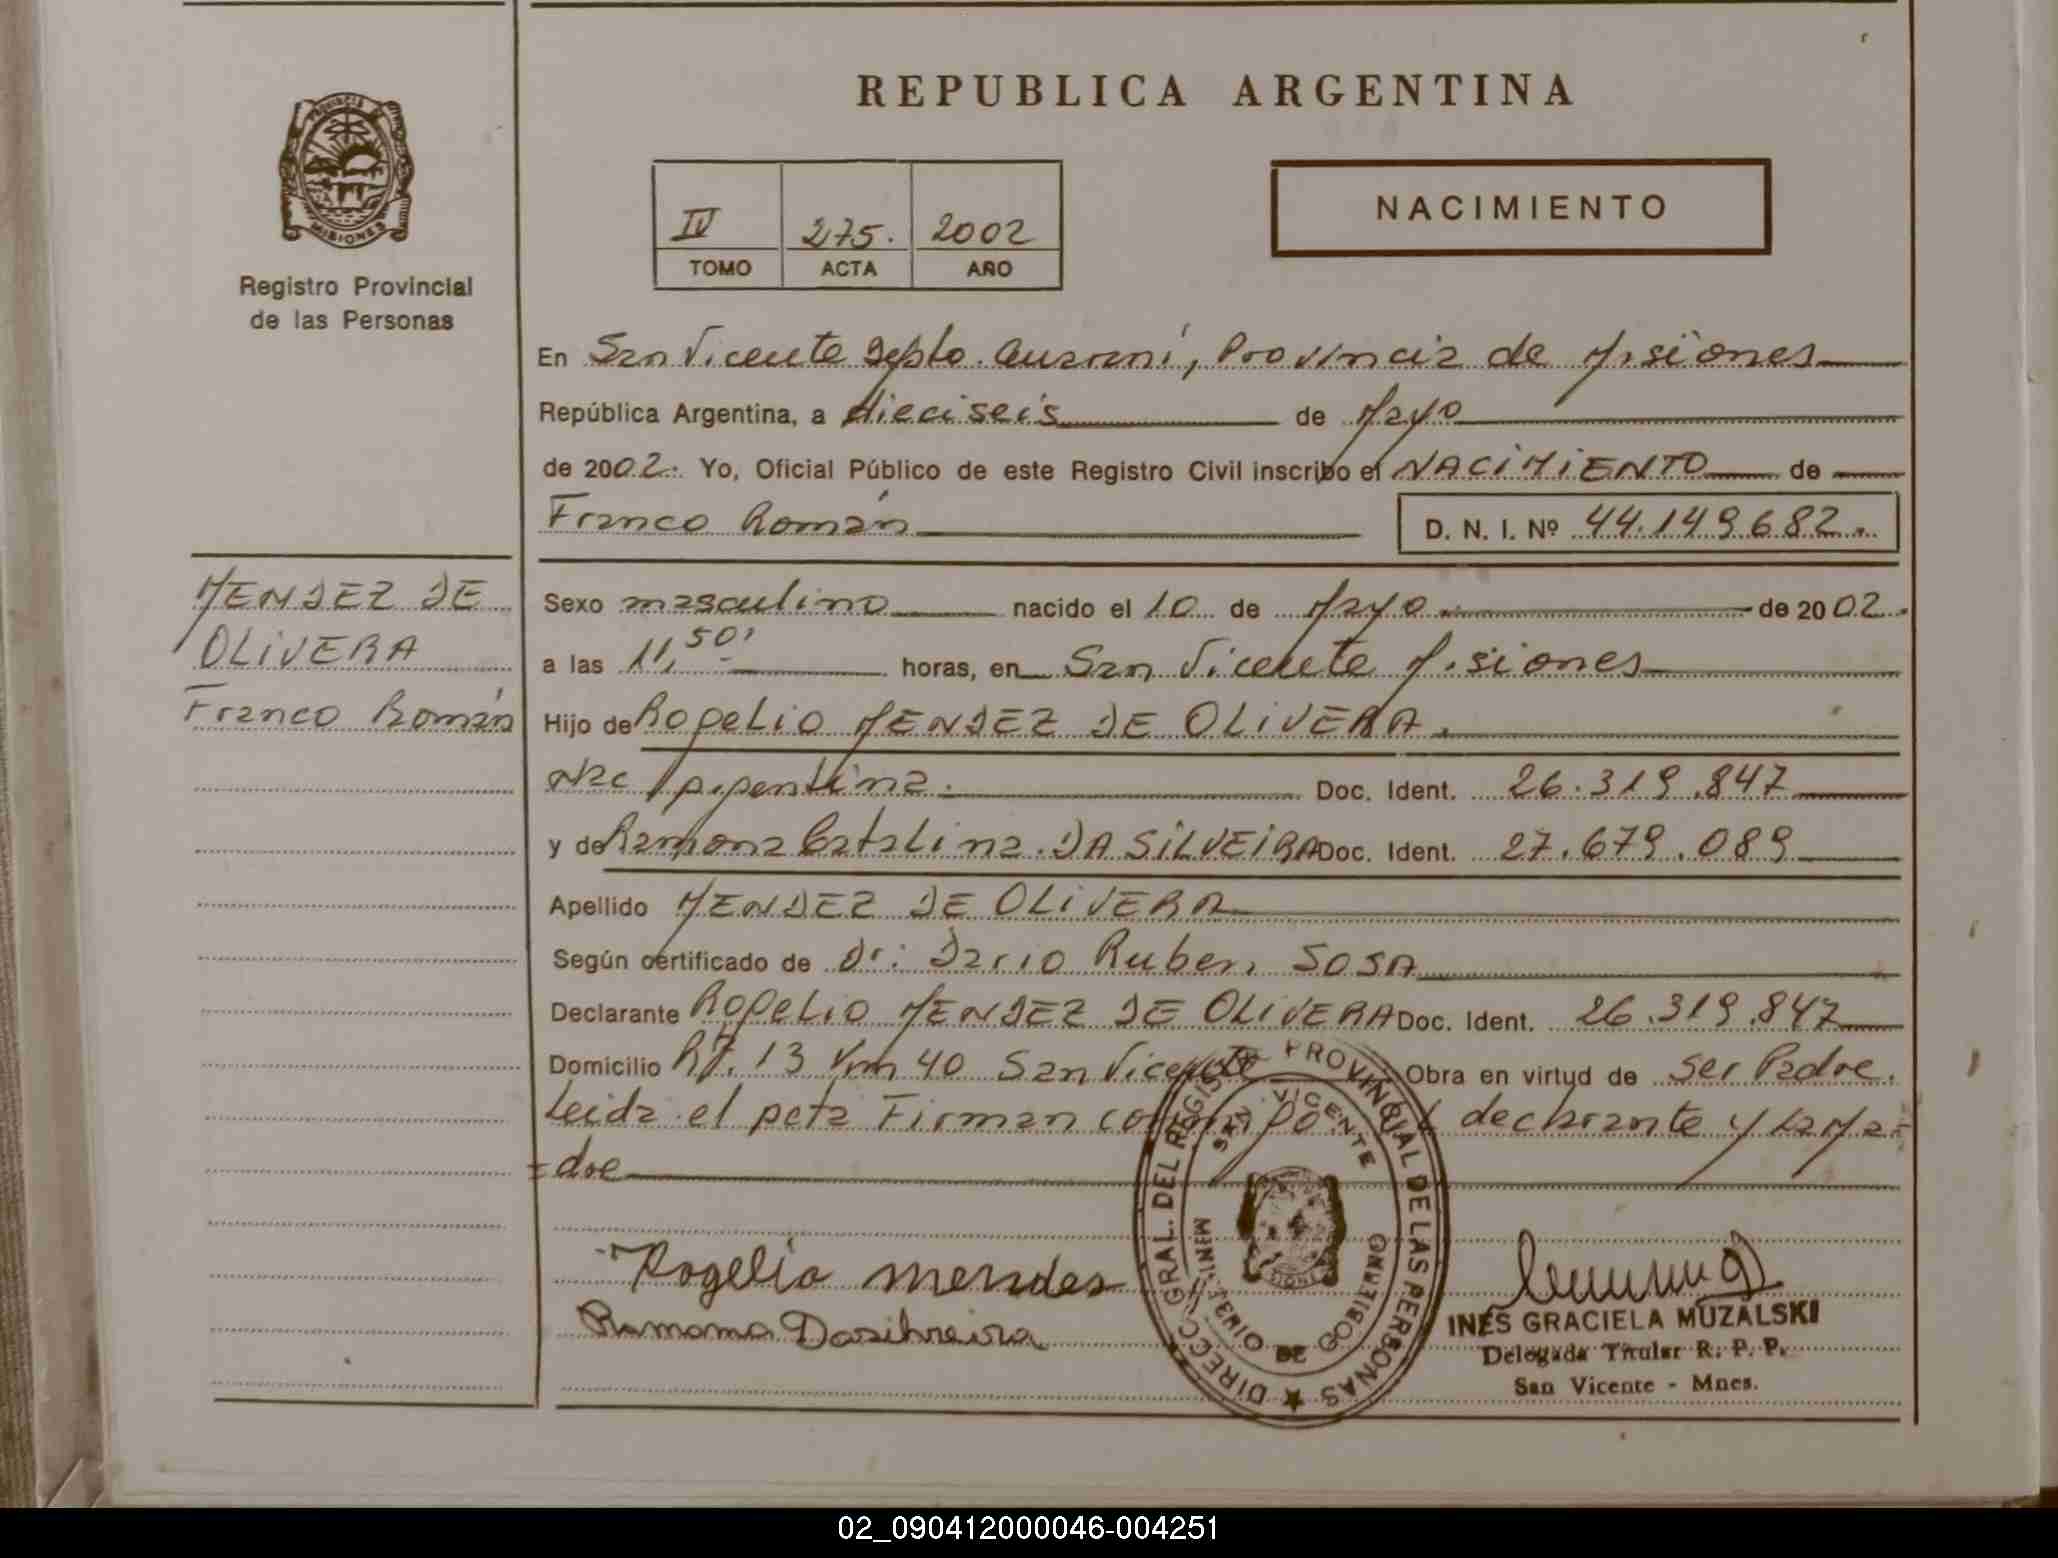 REPUBLICA ARGENTINA
PROVINCIA
MISIONES
Registro Provincial
de las Personas
IV 275. 2002
TOMO ACTA AÑO
NACIMIENTO
En San Vicente Depto. Guaraní, Provincia de Misiones
República Argentina, a dieciseis de Mayo
de 2002. Yo, Oficial Público de este Registro Civil inscribo el NACIMIENTO de
Franco Román D. N. I. Nº 44.149.682.
MENDEZ DE
OLIVERA
Franco Román
Sexo masculino nacido el 10 de Mayo de 2002.
a las 11,50' horas, en San Vicente Misiones
Hijo de Rogelio MENDEZ DE OLIVERA.
Nac Argentina. Doc. Ident. 26.319.847
y de Ramona Catalina DA SILVEIRA Doc. Ident. 27.679.089
Apellido MENDEZ DE OLIVERA
Según certificado de Dr: Dario Ruben SOSA
Declarante Rogelio MENDEZ DE OLIVERA Doc. Ident. 26.319.847
Domicilio R7. 13 Km 40 San Vicente Obra en virtud de ser Padre.
Leida el acta Firman conmigo el declarante y la Ma-
=dre
Rogelio mendes
Ramona Dasilveira
DIRECC. GRAL. DEL REGISTRO PROVINCIAL DE LAS PERSONAS
SAN VICENTE
MINISTERIO DE GOBIERNO
INES GRACIELA MUZALSKI
Delegada Titular R. P. P.
San Vicente - Mnes.
02_090412000046-004251